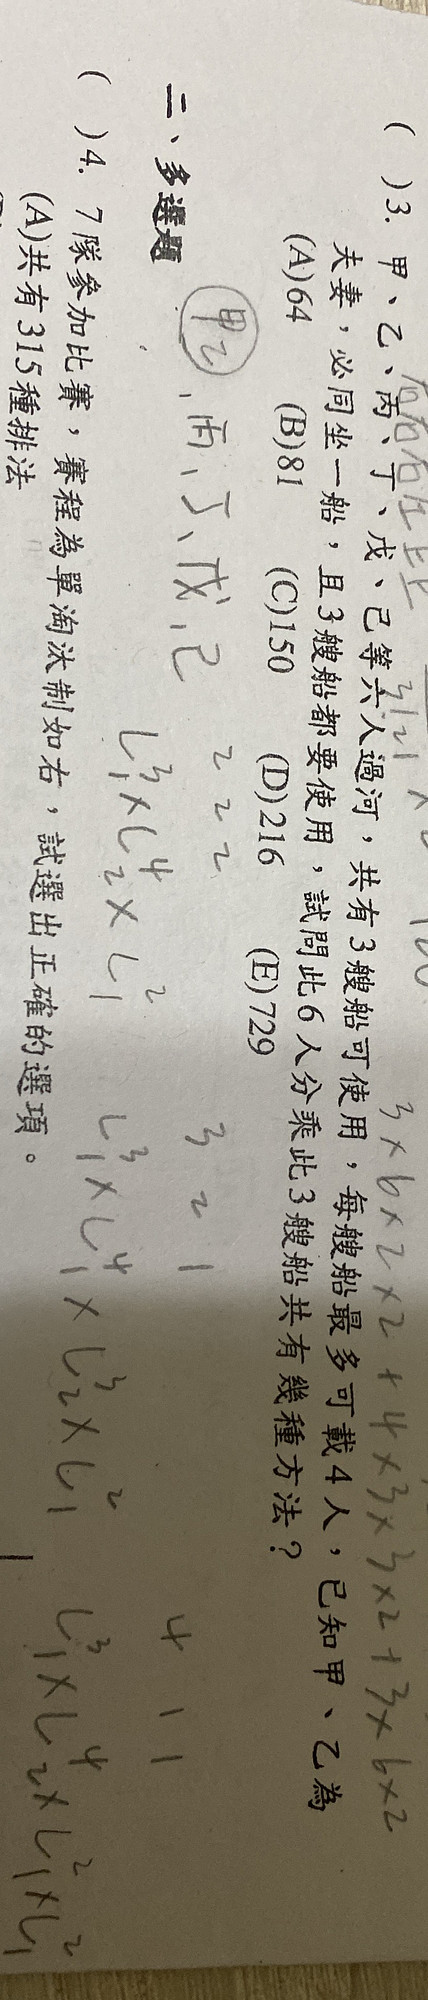 ( )3. 甲、乙、丙、丁、戊、己等六人過河，共有3艘船可使用，每艘船最多可載4人，已知甲、乙為
夫妻，必同坐一船，且3艘船都要使用，試問此6人分乘此3艘船共有幾種方法？
(A)64 (B)81 (C)150 (D)216 (E)729
3×6×2×2+4×3×3×2+3×6×2
甲乙、丙、丁、戊、己
2 2 2
3 2 1
4 1 1
二、多選題
( )4. 7隊參加比賽，賽程為單淘汰制如右，試選出正確的選項。
(A)共有315種排法